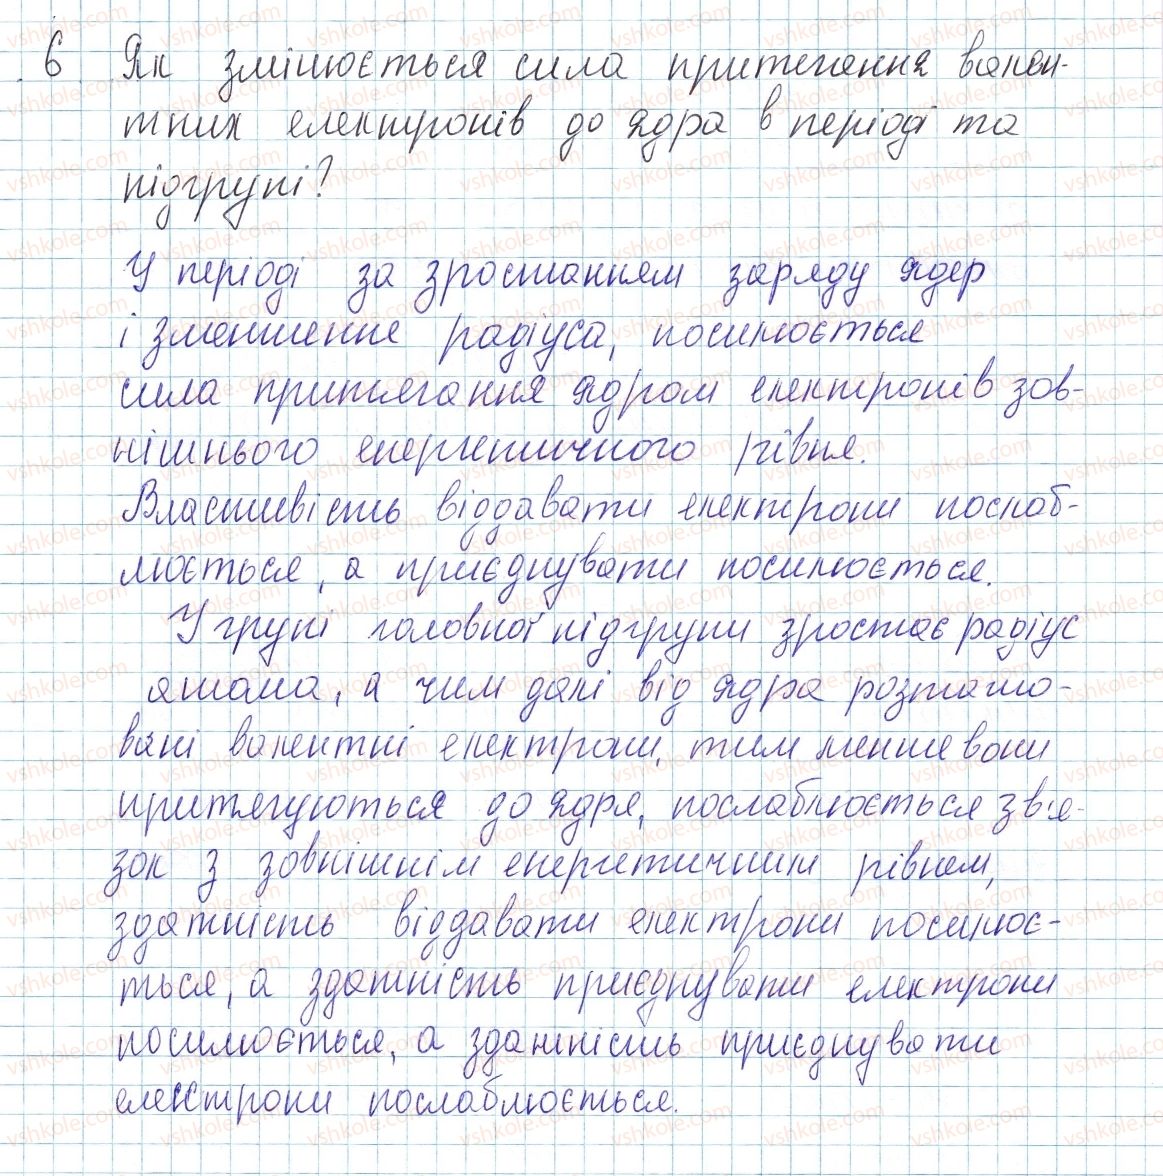 6 Як змінюється сила притягання вален-
тних електронів до ядра в періоді та
підгрупі?
У періоді за зростанням заряду ядер
і зменшенне радіуса, посилюється
сила притягання ядром електронів зов-
нішнього енергетичного рівня.
Властивість віддавати електрони послаб-
люється, а приєднувати посилюється.
У групі головної підгрупи зростає радіус
атома, а чим далі від ядра розташо-
вані валентні електрони, тим менше вони
притягуються до ядра, послаблюється зв'я-
зок з зовнішнім енергетичним рівнем,
здатність віддавати електрони посилює-
ться, а здатність приєднувати електрони
посилюється, а здатність приєднувати
електрони послаблюється.